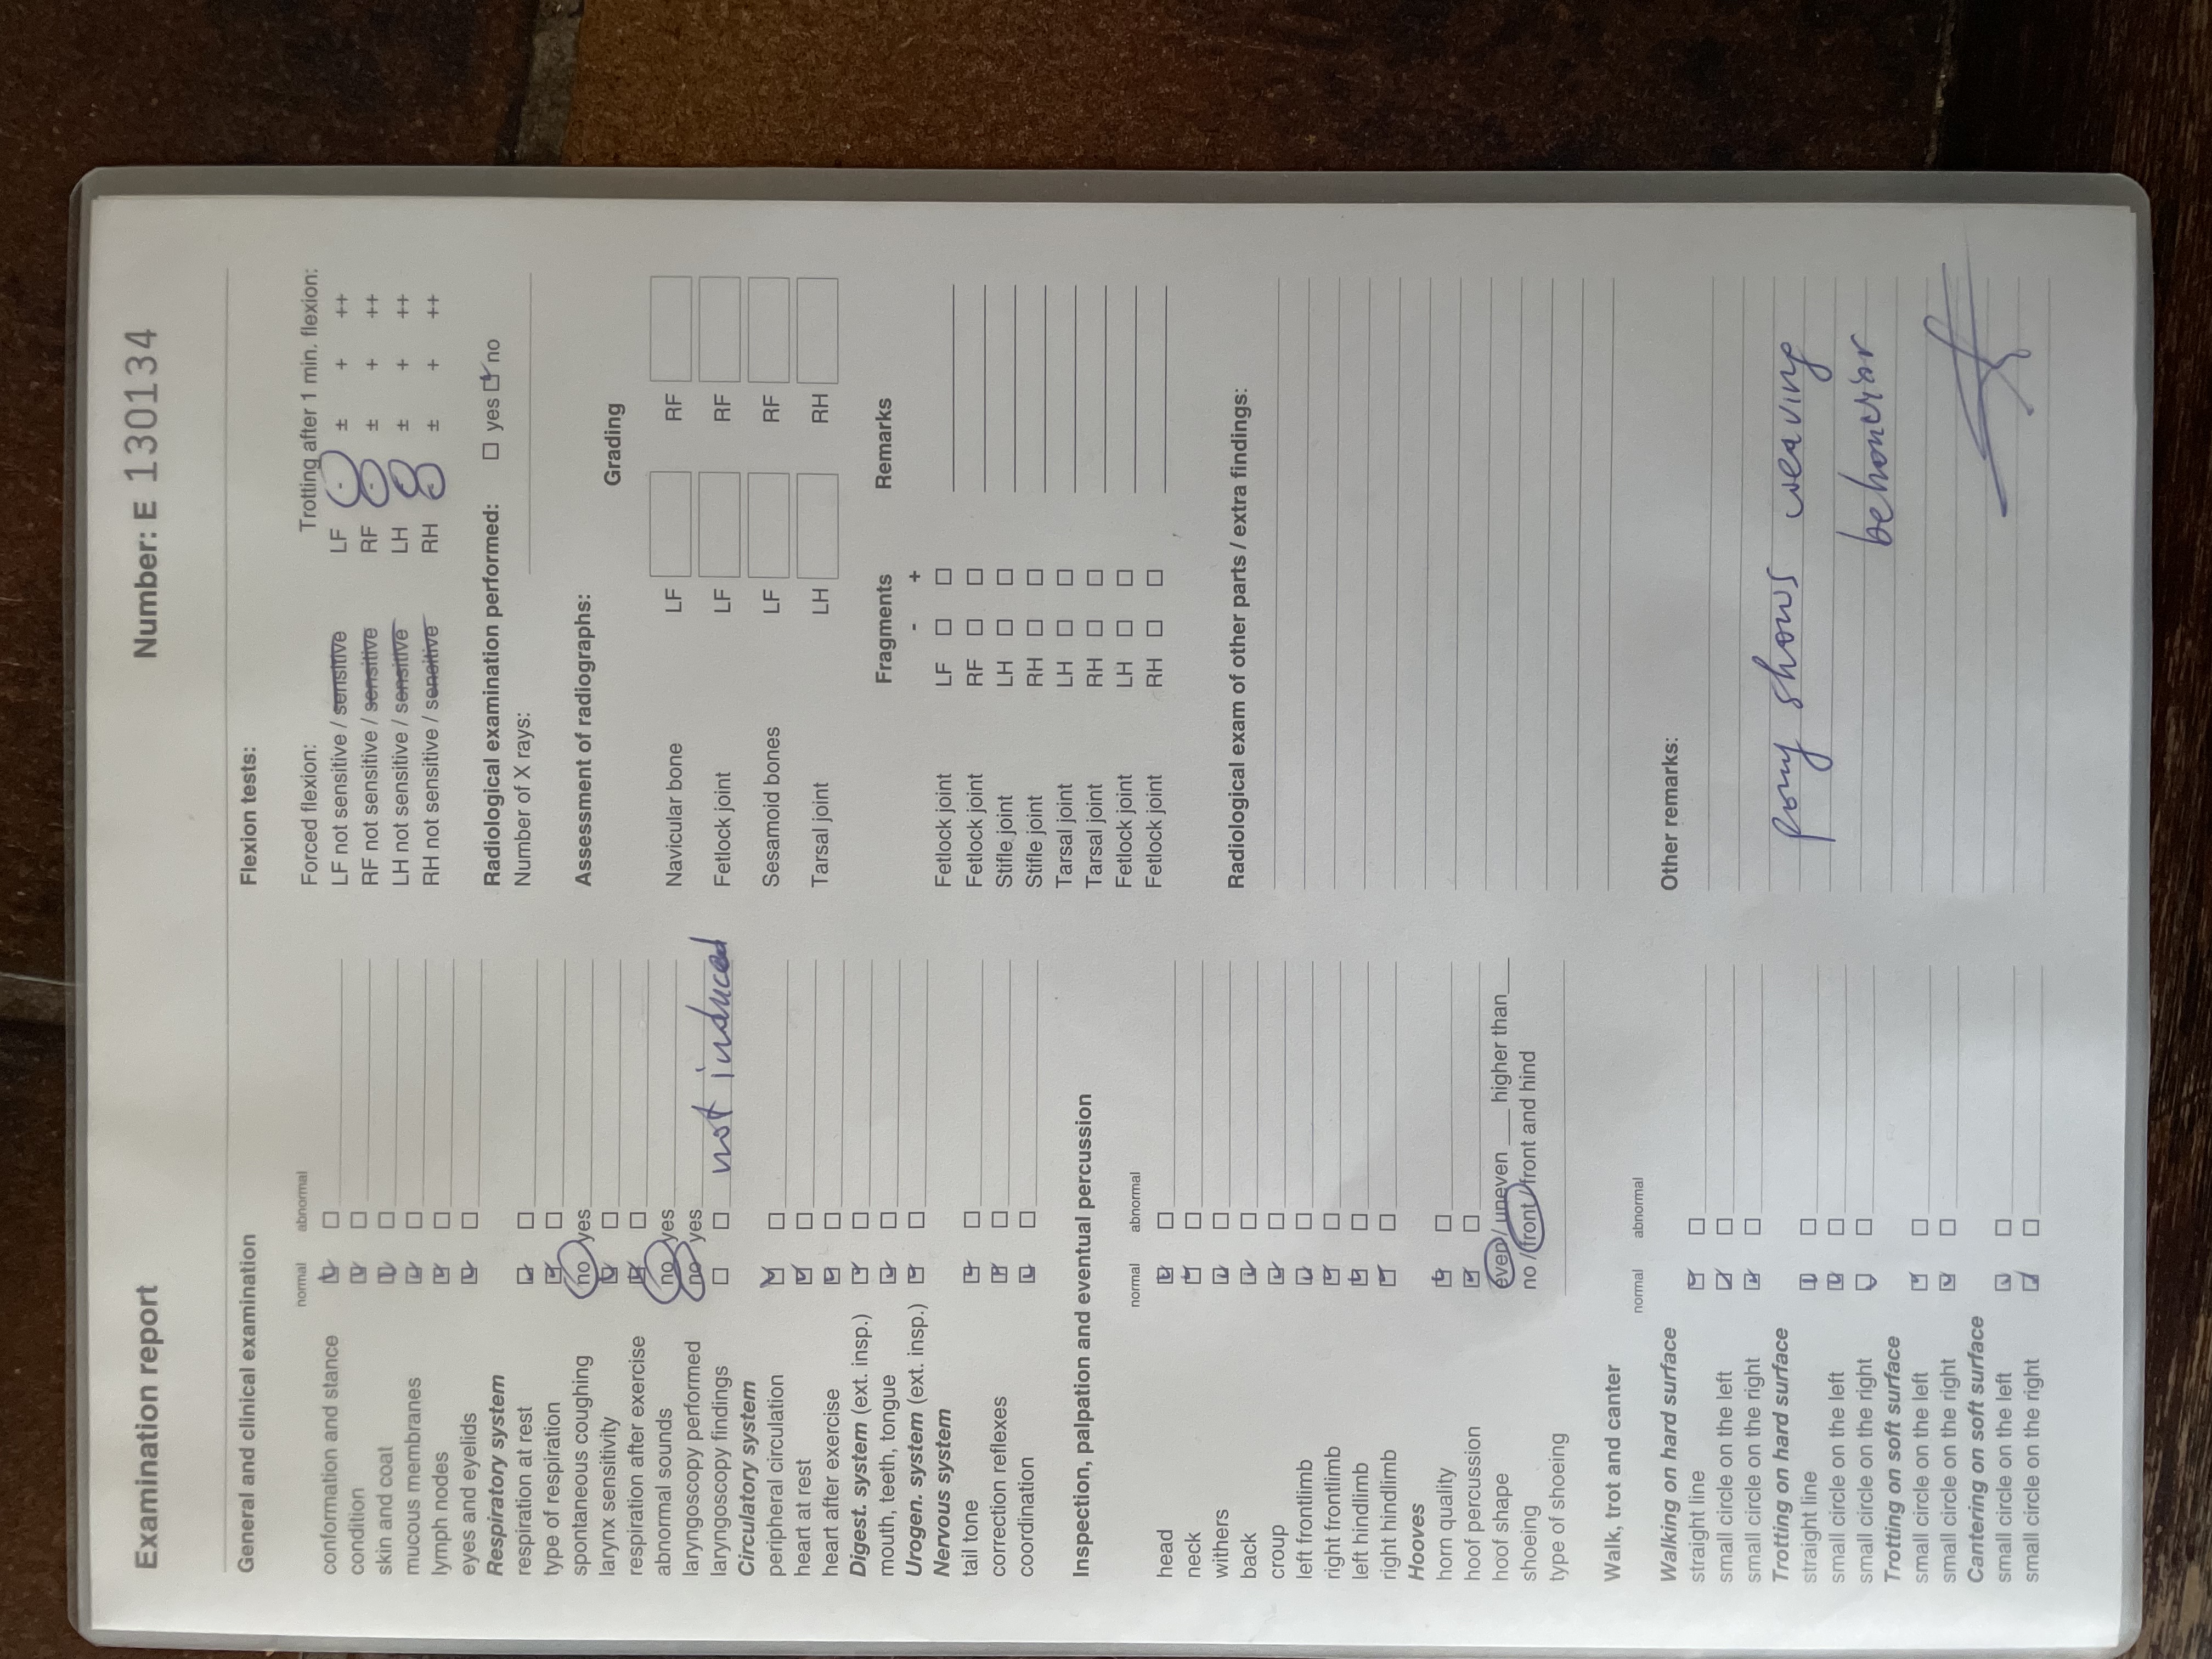 Examination report
Number: E 130134
General and clinical examination
normal abnormal
conformation and stance
condition
skin and coat
mucous membranes
lymph nodes
eyes and eyelids
Respiratory system
respiration at rest
type of respiration
spontaneous coughing no yes
larynx sensitivity
respiration after exercise
abnormal sounds no yes
laryngoscopy performed no yes
laryngoscopy findings not induced
Circulatory system
peripheral circulation
heart at rest
heart after exercise
Digest. system (ext. insp.)
mouth, teeth, tongue
Urogen. system (ext. insp.)
Nervous system
tail tone
correction reflexes
coordination
Inspection, palpation and eventual percussion
normal abnormal
head
neck
withers
back
croup
left frontlimb
right frontlimb
left hindlimb
right hindlimb
Hooves
horn quality
hoof percussion
hoof shape even / uneven ___ higher than___
shoeing no / front / front and hind
type of shoeing
Walk, trot and canter
normal abnormal
Walking on hard surface
straight line
small circle on the left
small circle on the right
Trotting on hard surface
straight line
small circle on the left
small circle on the right
Trotting on soft surface
small circle on the left
small circle on the right
Cantering on soft surface
small circle on the left
small circle on the right
Flexion tests:
Forced flexion: Trotting after 1 min. flexion:
LF not sensitive / sensitive LF - ± + ++
RF not sensitive / sensitive RF - ± + ++
LH not sensitive / sensitive LH - ± + ++
RH not sensitive / sensitive RH - ± + ++
Radiological examination performed: yes no
Number of X rays:
Assessment of radiographs: Grading
Navicular bone LF RF
Fetlock joint LF RF
Sesamoid bones LF RF
Tarsal joint LH RH
Fragments Remarks
- +
Fetlock joint LF
Fetlock joint RF
Stifle joint LH
Stifle joint RH
Tarsal joint LH
Tarsal joint RH
Fetlock joint LH
Fetlock joint RH
Radiological exam of other parts / extra findings:
Other remarks:
pony shows weaving
behavior